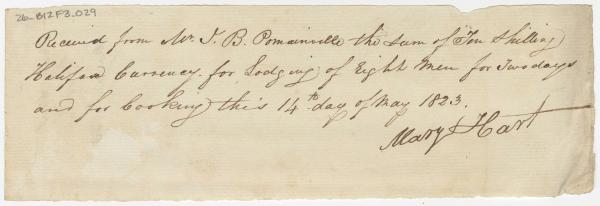 26-B12F3-029
Received from Mr. J. B. Pomainville the Sum of Ten Shilling
Halifax Currency. for Lodging of Eight Men for Two days
and for Cooking this 14th day of May 1823.
Mary Hart